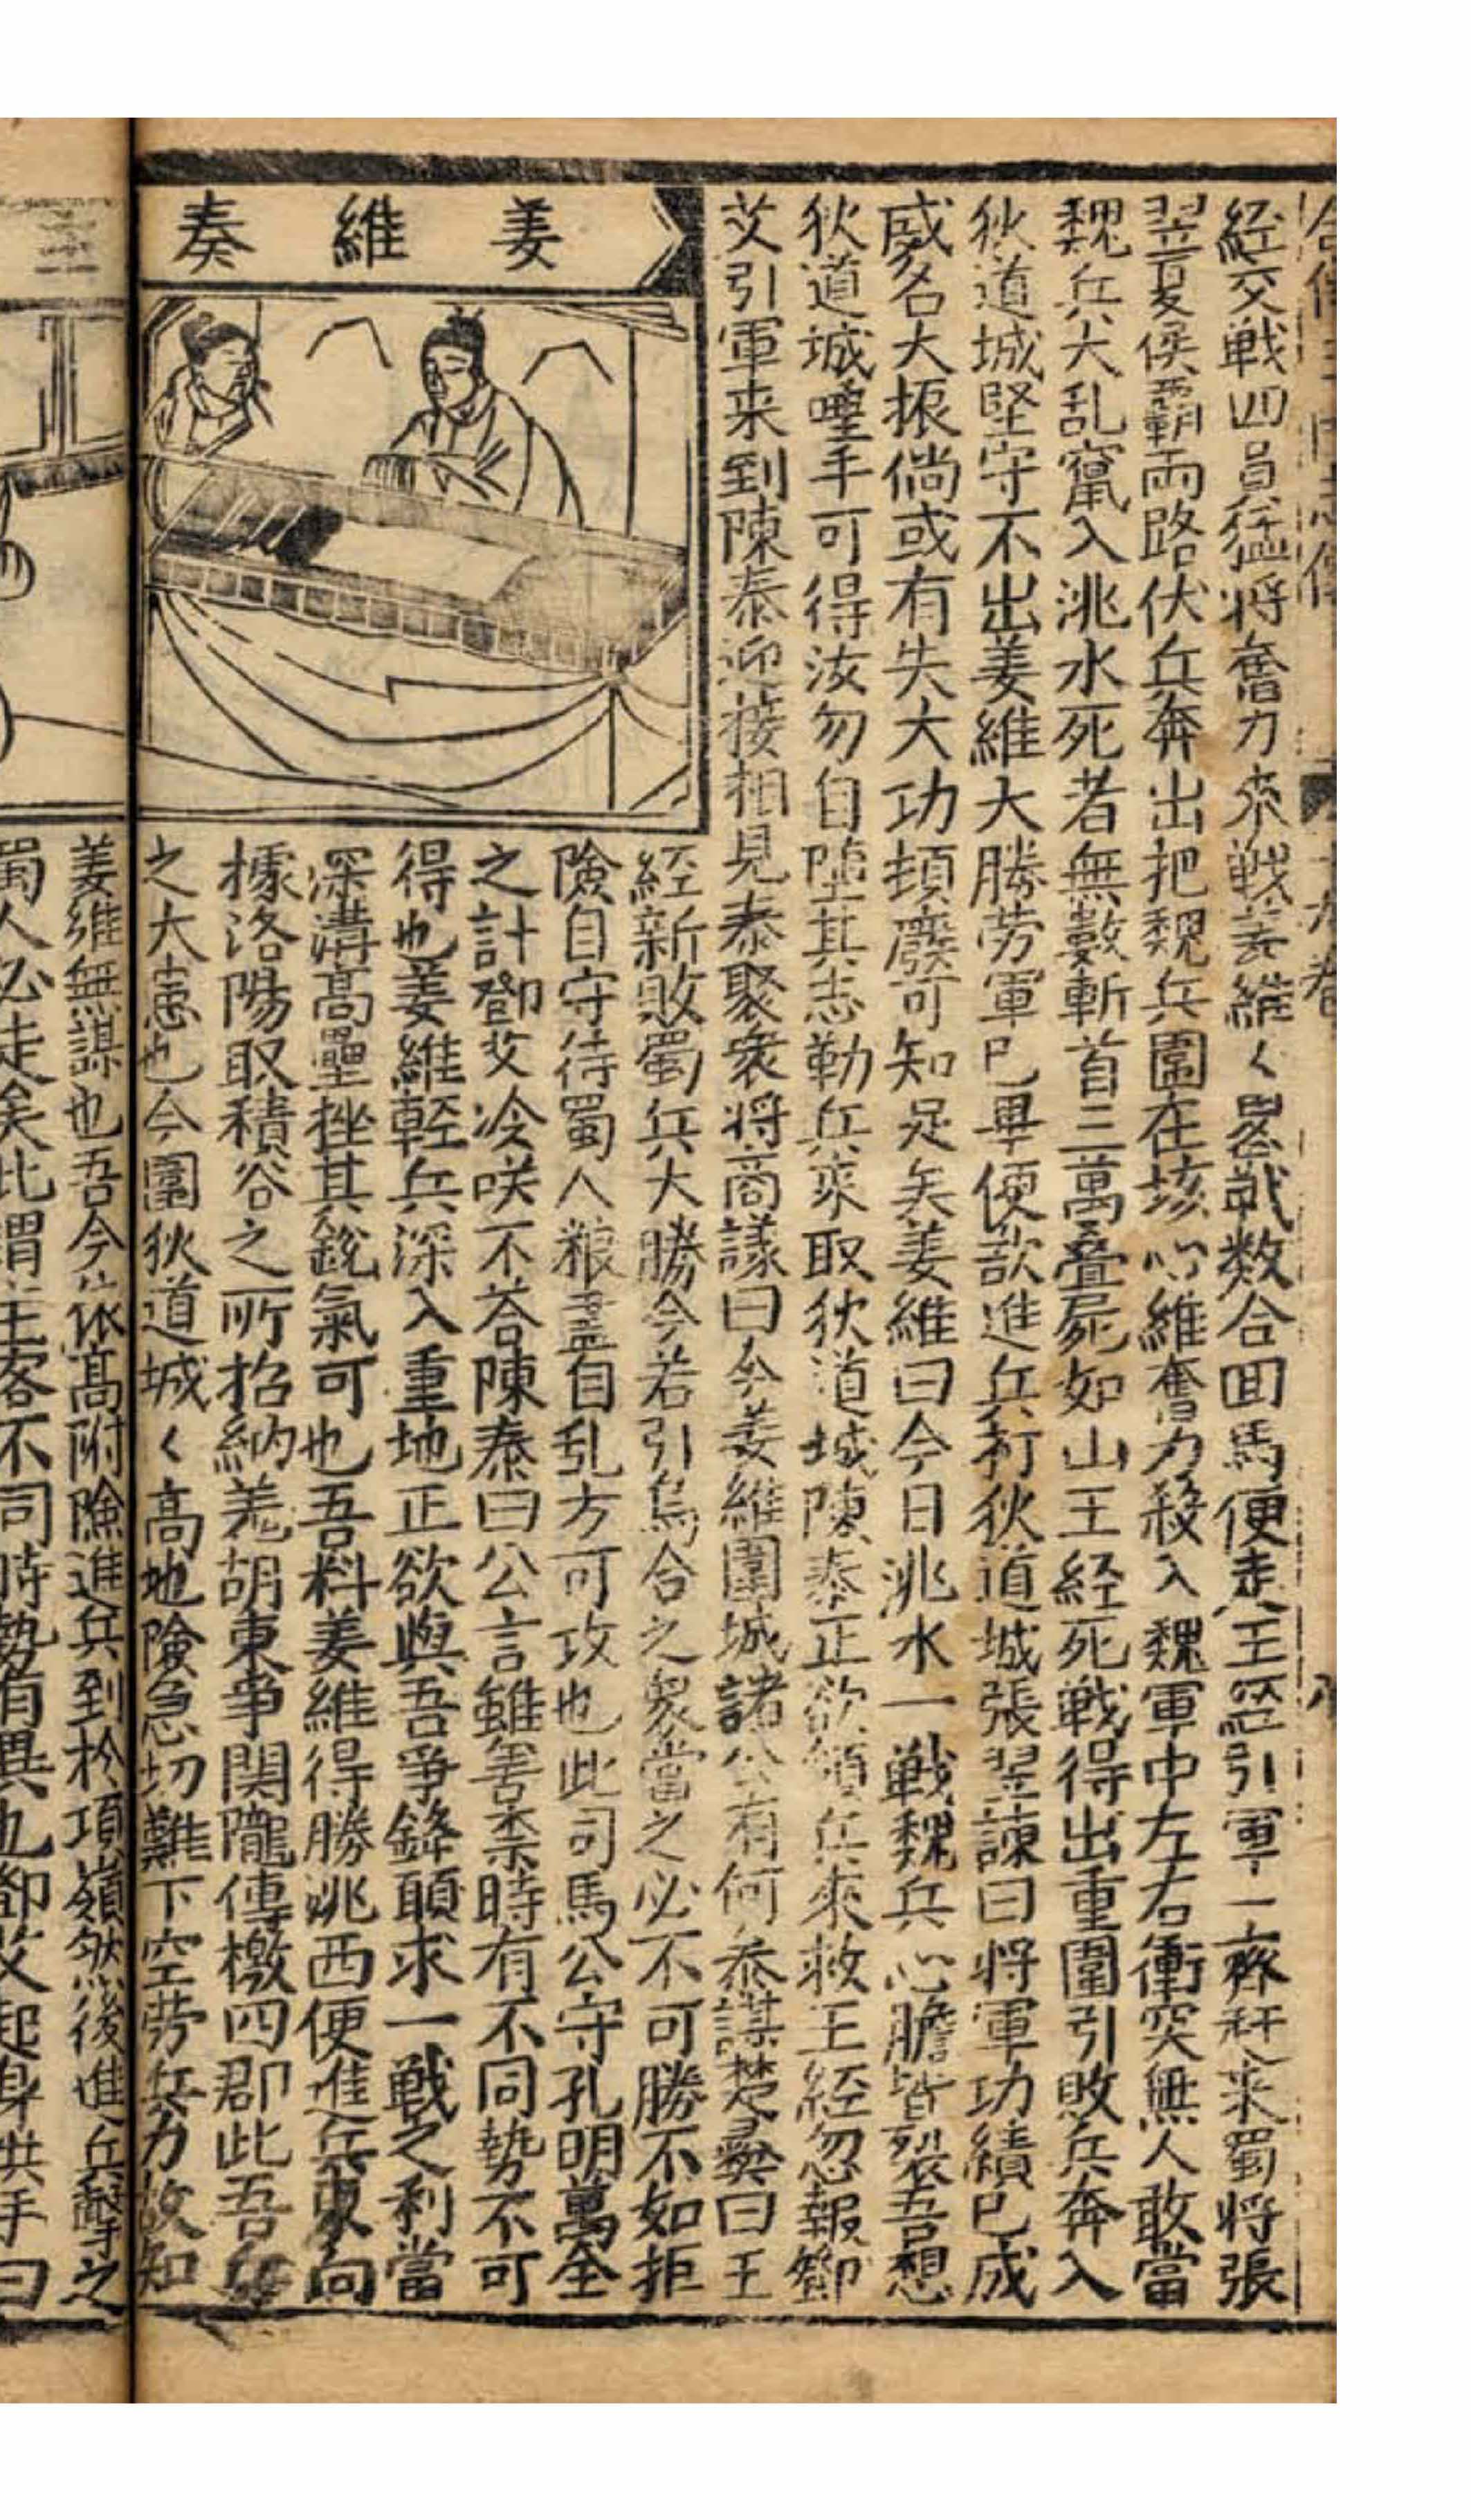 經交戦四員猛将奮力來戦姜維く畧戦数合回馬便走王經引軍一齊赶来蜀将張
翌夏侯霸兩路伏兵奔出把魏兵圍在垓心維奮力殺入魏軍中左右衝突無人敢當
魏兵大乱竄入洮水死者無數斬首三萬疊屍如山王経死戦得出重圍引敗兵奔入
狄道城堅守不出姜維大勝劳軍已畢便欲進兵打狄道城張翌諫曰将軍功績已成
威名大振倘或有失大功頓廢可知足矣姜維曰今日洮水一戦魏兵心膽皆裂吾想
狄道城唾手可得汝勿自墮其志勒兵來取狄道城陳泰正欲領兵來救王経忽報鄧
艾引軍来到陳泰迎接相見泰聚衆将商議曰今姜維圍城諸公有何泰謀楚彛曰王
姜維奏
経新敗蜀兵大勝今若引烏合之衆當之必不可勝不如拒
險自守待蜀人粮盡自乱方可攻也此司馬公守孔明萬全
之計鄧艾冷咲不荅陳泰曰公言雖善柰時有不同勢不可
得也姜維輕兵深入重地正欲與吾爭鋒頭求一戦之利當
深溝髙壘挫其銳氣可也吾料姜維得勝洮西便進兵東向
據洛陽取積谷之所招納羌胡東爭関隴傳檄四郡此吾
之大患也今圍狄道城く高地險急切難下空劳兵力故知
姜維無謀也吾今 依髙附險進兵到於項嶺然後進兵擊之
蜀人必走矣比謂主客不同時勢有異也鄧艾起身拱手曰